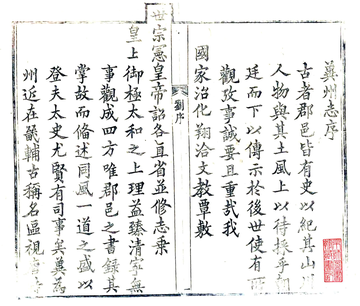 冀州志序
古者郡邑皆有史以紀其山川
人物與其土風上以待採乎朝
廷而下以傳示於後世使有所
觀攷事誠要且重哉我
國家治化翔洽文教覃敷
劉序
世宗憲皇帝詔各直省並修志乘
皇上御極太和之上理益臻清寧無
事觀成四方唯郡邑之書錄其
掌故而備述同風一道之盛以
登夫太史尤賢有司事矣冀為
州近在畿輔古稱名區視